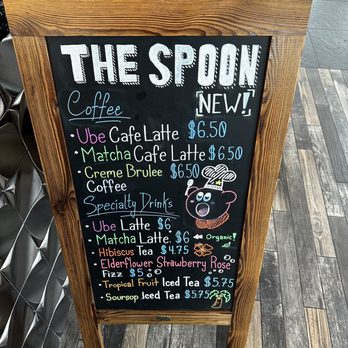 THE SPOON
[NEW!]
Coffee
• Ube Cafe Latte $6.50
• Matcha Cafe Latte $6.50
• Creme Brulee $6.50
Coffee
Specialty Drinks
• Ube Latte $6
• Matcha Latte $6 ← Organic!
• Hibiscus Tea $4.75
• Elderflower Strawberry Rose
Fizz $5
• Tropical Fruit Iced Tea $5.75
• Soursop Iced Tea $5.75